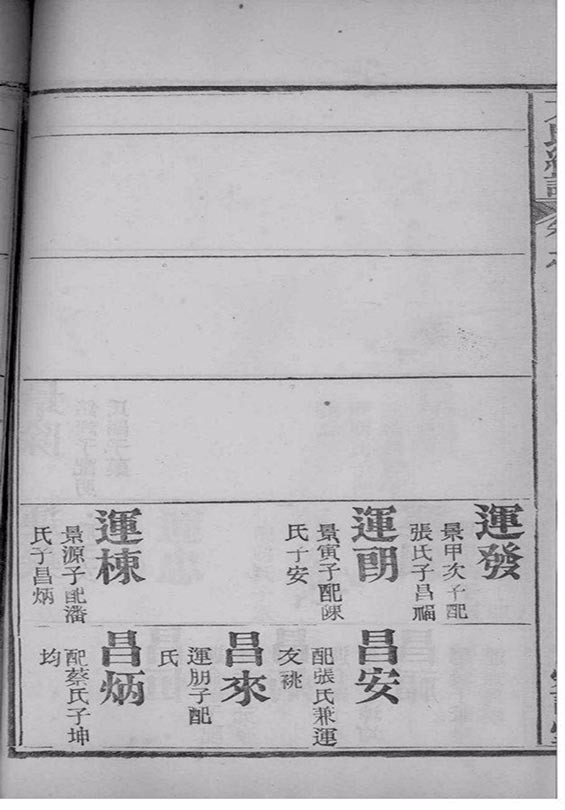 運發
景甲次子配
張氏子昌福
運
景寅子配陳
氏子安
運棟
景源子配潘
氏子昌炳
昌安
配張氏兼運
友祧
昌來
運朋子配
氏
昌炳
配蔡氏子坤
均